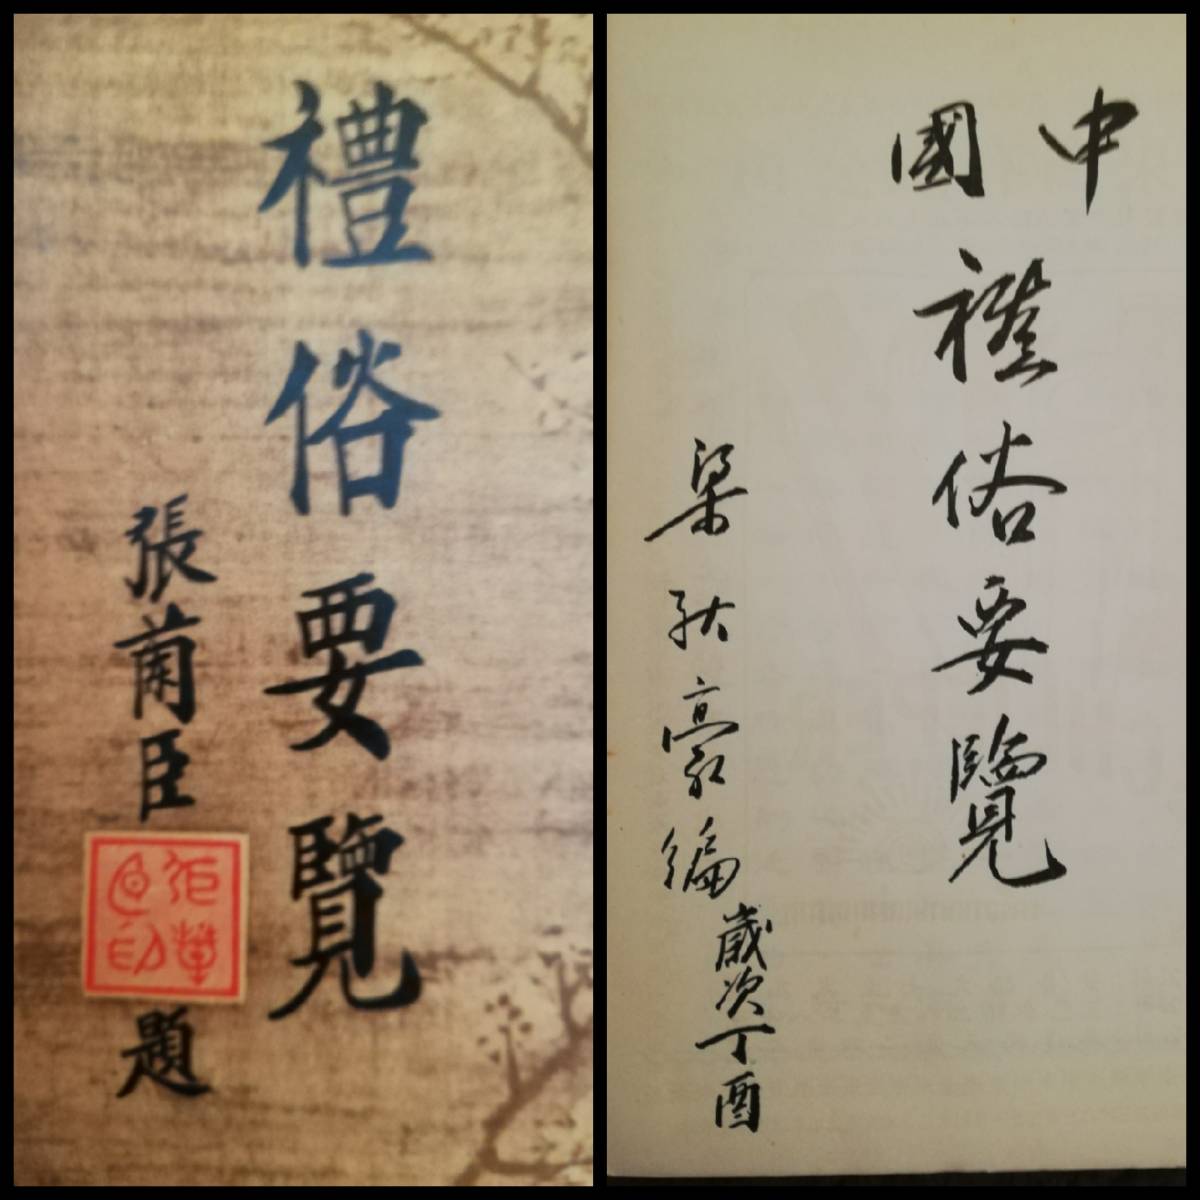 禮俗要覽
張蘭臣
題
中國
禮俗要覽
梁 豪編
歲次丁酉